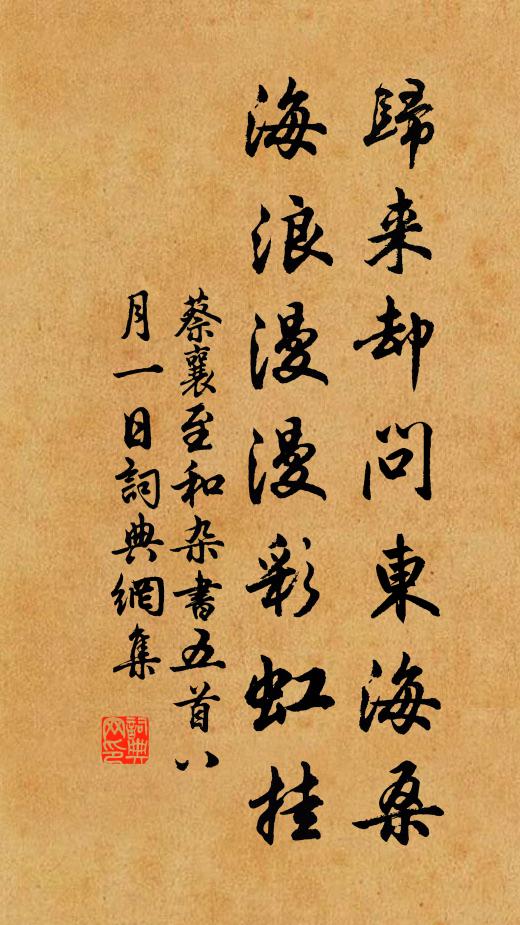 歸来却問東海桑
海浪漫漫彩虹挂
蔡襄至和杂書五首八
月一日詞典網集
詞典
网印